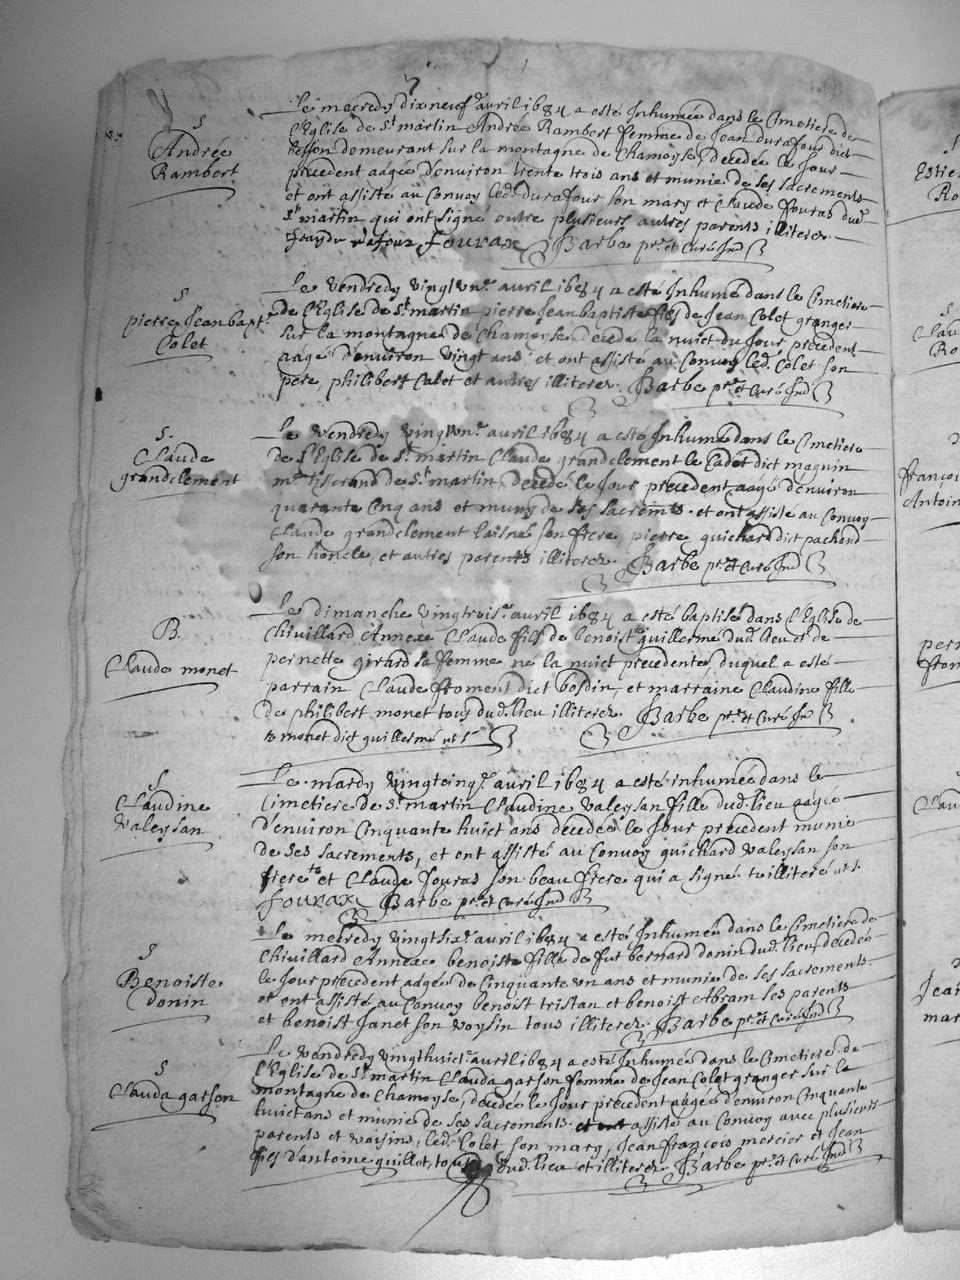 S
Andrée
Rambert
Le mecredy dixneufe avril 1684 a esté Inhumée dans le Cimetiere de
L'Eglise de St martin Andrée Rambert femme de Jean durafour dict
besson demeurant sur la montagne de Chamoyse, decedée le Jour
precedent aagée d'environ trente trois ans et munie de ses sacrements
et ont assisté au Convoy led. durafour son mary et Claude fouras dud.
St martin qui ont signé outre plusieurs autres parents illiterez
Jean durafour, fourax Barbe ptre et Curé Ind
S
pierre Jeanbapt.
Colet
Le vendredy vingtune avril 1684 a esté Inhumé dans le Cimetiere
de l'Eglise de St martin pierre Jeanbaptiste fils de Jean Colet granger
sur la montagne de Chamoyse decedé la nuict du Jour precedent
aagé d'environ vingt ans et ont assisté au Convoy led. Colet son
pere, philibert Calet et autres illiterez Barbe ptre et Curé Ind
S.
Claude
grandclement
Le vendredy vingtune avril 1684 a esté Inhumé dans le Cimetiere
de l'Eglise de St martin Claude grandclement le Cadet dict maquin
me tisserand de St martin, decedé le Jour precedent aagé d'environ
quarante Cinq ans et muny de ses sacremts. et ont assisté au Convoy
Claude grandclement laisné son frere, pierre guichard dict pachoud
son honcle, et autres parents illiterez Barbe ptre et Curé Ind
B.
Claude monet
Le dimanche vingtroise avril 1684 a esté baptisé dans L'Eglise de
Chivillard Annexe Claude fils de benoist guillermé dud. lieu et de
pernette girard sa femme né la nuict precedente, duquel a esté
parrain Claude froment dict bosdin, et marraine Claudine fille
de philibert monet tous dud. lieu illiterez. Barbe ptre et Curé Ind
monet dict guillermé
S
Claudine
Valeysan
Le mardy vingtcinqe avril 1684 a esté inhumée dans le
Cimetiere de St martin Claudine Valeysan fille dud. lieu aagée
d'environ Cinquante huict ans decedée le Jour precedent munie
de ses sacrements, et ont assisté au Convoy guichard Valeysan son
frere et Claude fouras son beau frere qui a signé
fourax Barbe ptre et Curé Ind
S
Benoiste
donin
Le mecredy vingtsixe avril 1684 a esté Inhumée dans le Cimetiere de
Chivillard Annexe benoiste fille de fut bernard donin dud. lieu, decedée
le Jour precedent aagée de Cinquante un ans et munie de ses sacrements
et ont assisté au Convoy benoist tristan et benoist Abram ses parents
et benoist Janet son voysin tous illiterez. Barbe ptre et Curé Ind
S
Clauda garson
Le vendredy vingthuicte avril 1684 a esté Inhumée dans le Cimetiere de
L'Eglise de St martin Clauda garson femme de Jean Colet granger sur la
montagne de Chamoyse, decedée le Jour precedent aagée d'environ Cinquante
huict ans et munie de ses sacrements et ont assisté au Convoy avec plusieurs
parents et voysins, led. Colet son mary, Jean françois mercier et Jean
fils d'antoine guillot, tous dud. lieu et illiterez Barbe ptre et Curé Ind